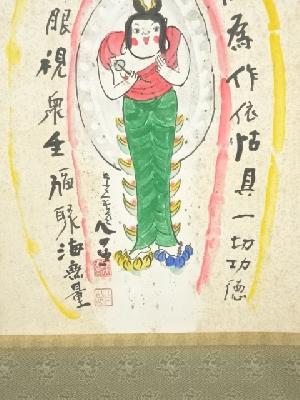 為作依怙具一切功徳
眼視衆生福聚
海無量